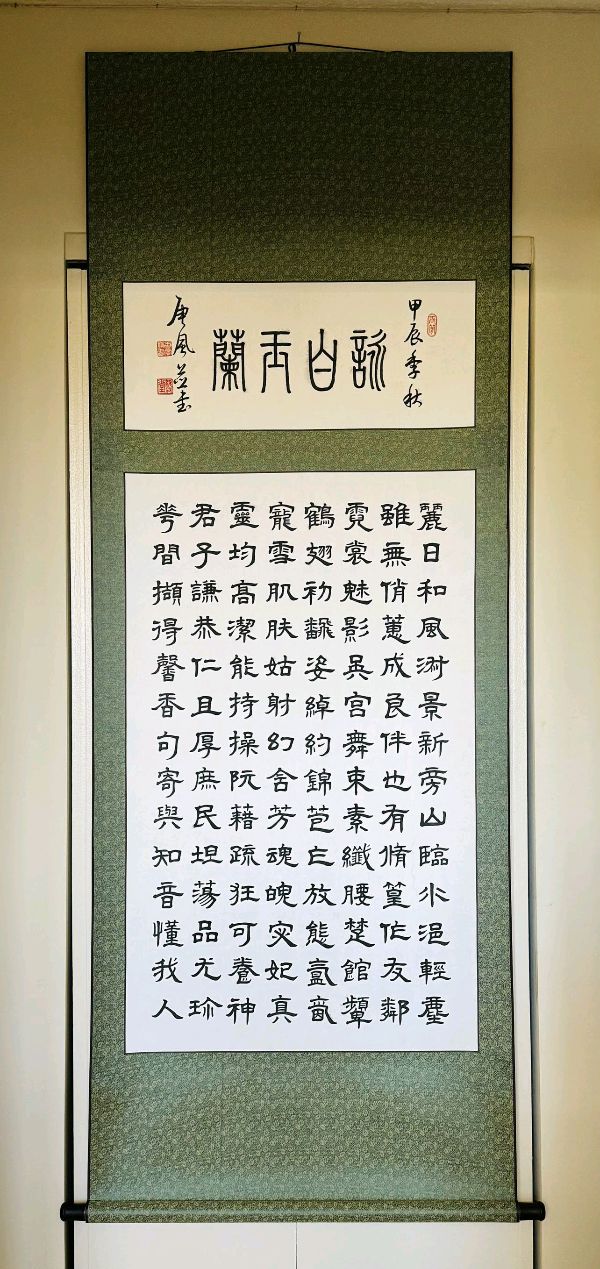 甲辰季秋
詠白玉蘭
麗日和風淑景新旁山臨水浥輕塵
雖無俏蕙成良伴也有脩篁作友鄰
霓裳魅影吳宮舞束素纖腰楚館顰
鶴翅初翻姿綽約錦苞乍放態氳氤
寵雪肌肤姑射幻含芳魂魄宓妃真
靈均高潔能持操阮藉疏狂可養神
君子謙恭仁且厚庶民坦蕩品尤珍
花間擷得馨香句寄與知音懂我人
風並書